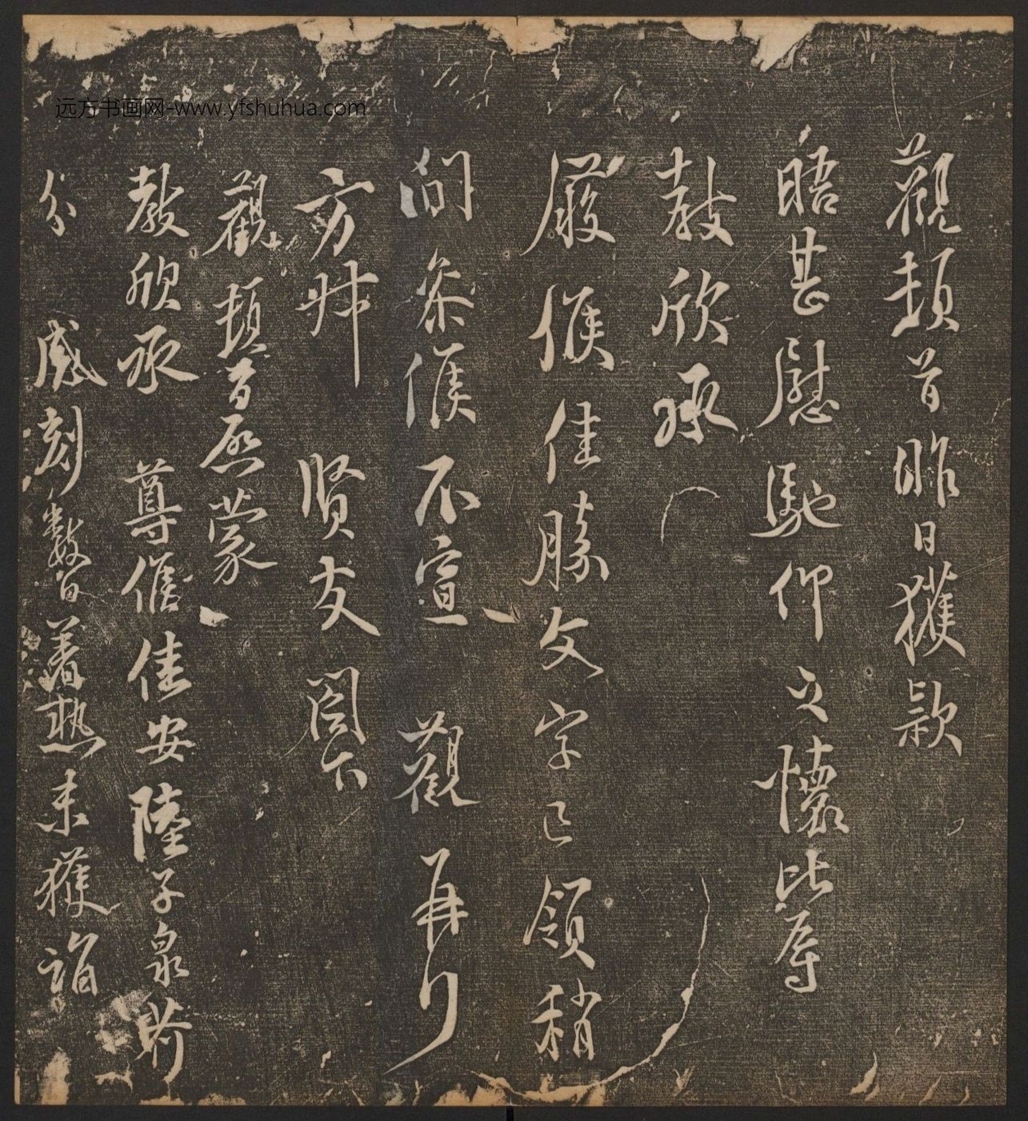 觀頓首昨日獲款
晤甚慰馳仰之懷比辱
教欣承
嚴候佳勝文字已領稍
間參候不宣 觀再行
方叔 賢友閣下
觀頓首啓蒙
教欣承 尊候佳安陸子泉
分 感刻數日暑熱未獲詣
远方书画网-www.yfshuhua.com